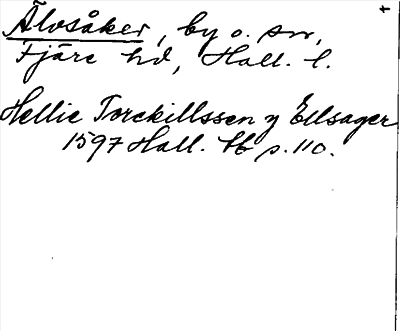 Älvsåker, by o. sn,
Fjäre hd, Hall. l.
Hellie Torckillssen y Ellsager
1597 Hall. tb p. 110.